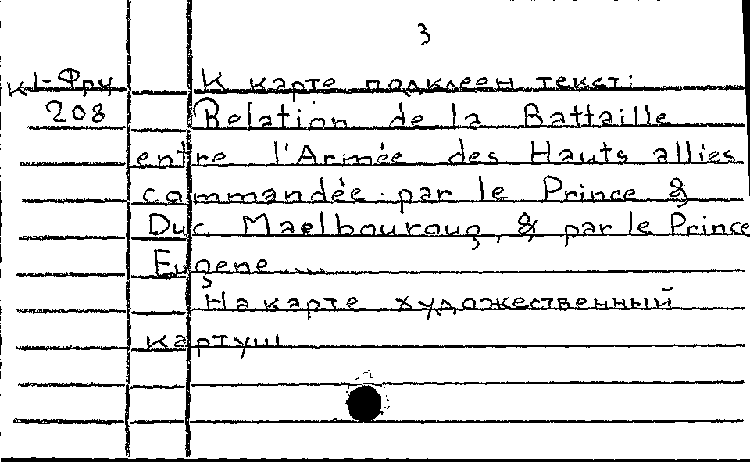 3
К1-Фрц К карте подклеен текст:
208 Relation de la Battaille
entre l'Armée des Hauts allies
commandée par le Prince &
Duc Maelbouroug, & par le Prince
Eugene....
На карте художественный
картуш